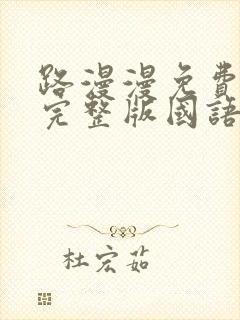 路漫漫免費
完整版國語
杜宏茹